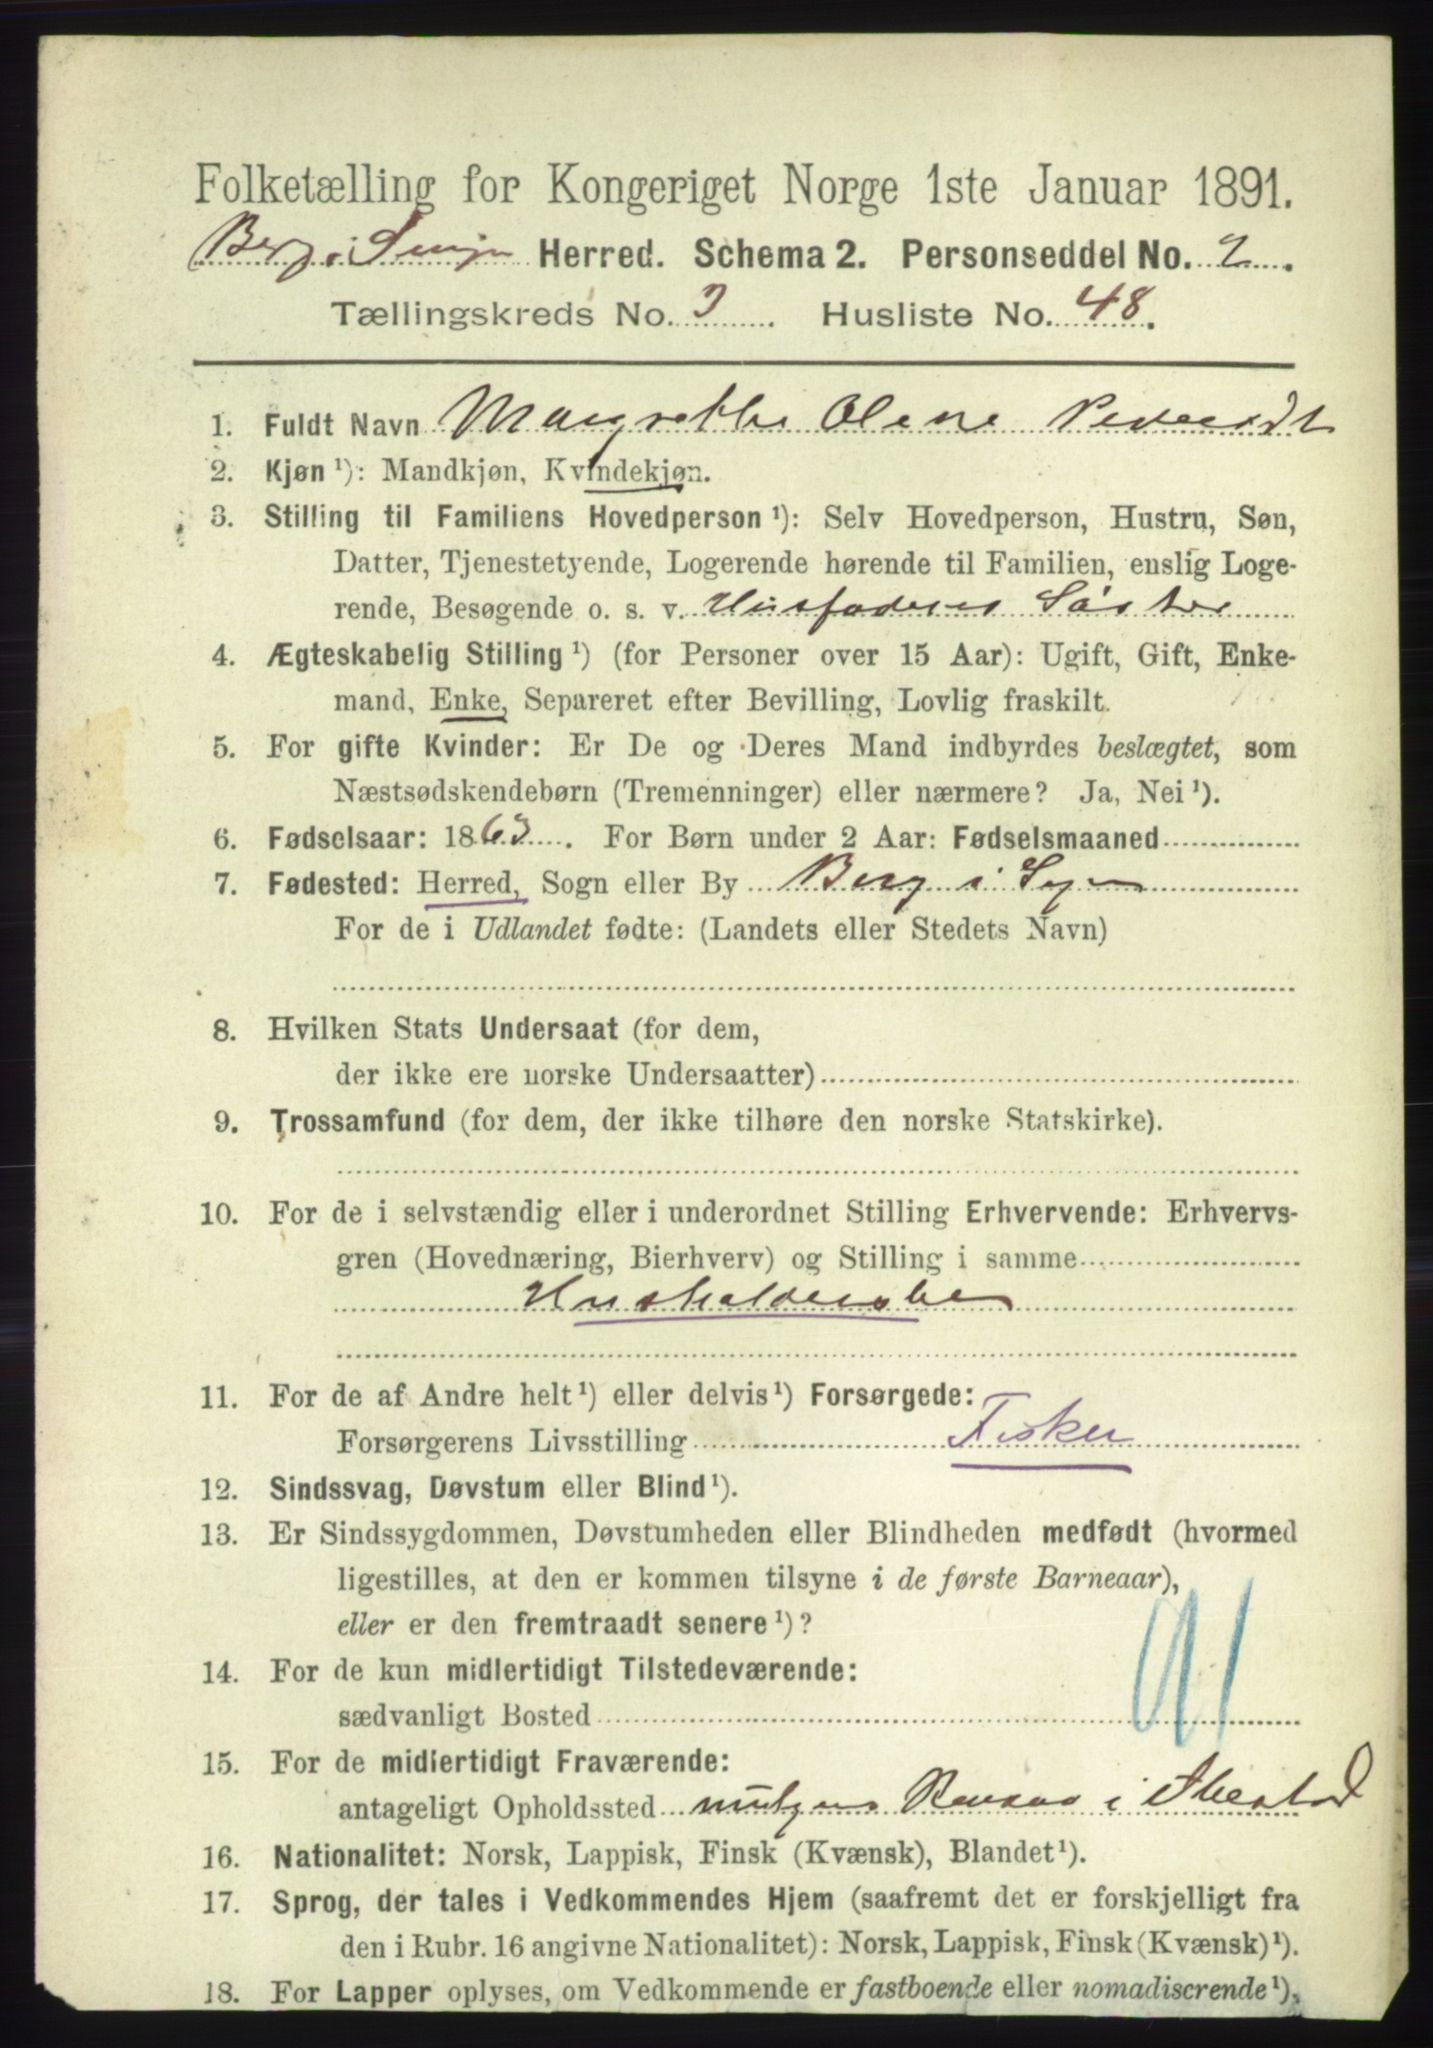 Folketælling for Kongeriget Norge 1ste Januar 1891.
Berg i Senjen Herred. Schema 2. Personseddel No. 2.
Tællingskreds No. 3. Husliste No. 48.
1. Fuldt Navn Margrethe Olene Pedersdt
2. Kjøn ¹): Mandkjøn, Kvindekjøn.
3. Stilling til Familiens Hovedperson ¹): Selv Hovedperson, Hustru, Søn,
Datter, Tjenestetyende, Logerende hørende til Familien, enslig Loge-
rende, Besøgende o. s. v. Husfaderens Søster
4. Ægteskabelig Stilling ¹) (for Personer over 15 Aar): Ugift, Gift, Enke-
mand, Enke, Separeret efter Bevilling, Lovlig fraskilt.
5. For gifte Kvinder: Er De og Deres Mand indbyrdes beslægtet, som
Næstsødskendebørn (Tremenninger) eller nærmere? Ja, Nei ¹).
6. Fødselsaar: 1863. For Børn under 2 Aar: Fødselsmaaned
7. Fødested: Herred, Sogn eller By Berg i
For de i Udlandet fødte: (Landets eller Stedets Navn)
8. Hvilken Stats Undersaat (for dem,
der ikke ere norske Undersaatter)
9. Trossamfund (for dem, der ikke tilhøre den norske Statskirke).
10. For de i selvstændig eller i underordnet Stilling Erhvervende: Erhvervs-
gren (Hovednæring, Bierhverv) og Stilling i samme
Husholderske
11. For de af Andre helt ¹) eller delvis ¹) Forsørgede:
Forsørgerens Livsstilling Fisker
12. Sindssvag, Døvstum eller Blind ¹).
13. Er Sindssygdommen, Døvstumheden eller Blindheden medfødt (hvormed
ligestilles, at den er kommen tilsyne i de første Barneaar),
eller er den fremtraadt senere ¹)?
14. For de kun midlertidigt Tilstedeværende:
sædvanligt Bosted
91
15. For de midlertidigt Fraværende:
antageligt Opholdssted i
16. Nationalitet: Norsk, Lappisk, Finsk (Kvænsk), Blandet ¹).
17. Sprog, der tales i Vedkommendes Hjem (saafremt det er forskjelligt fra
den i Rubr. 16 angivne Nationalitet): Norsk, Lappisk, Finsk (Kvænsk) ¹).
18. For Lapper oplyses, om Vedkommende er fastboende eller nomadiserende ¹),